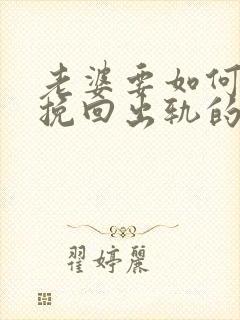 老婆要如何
挽回出轨的
翟婷丽